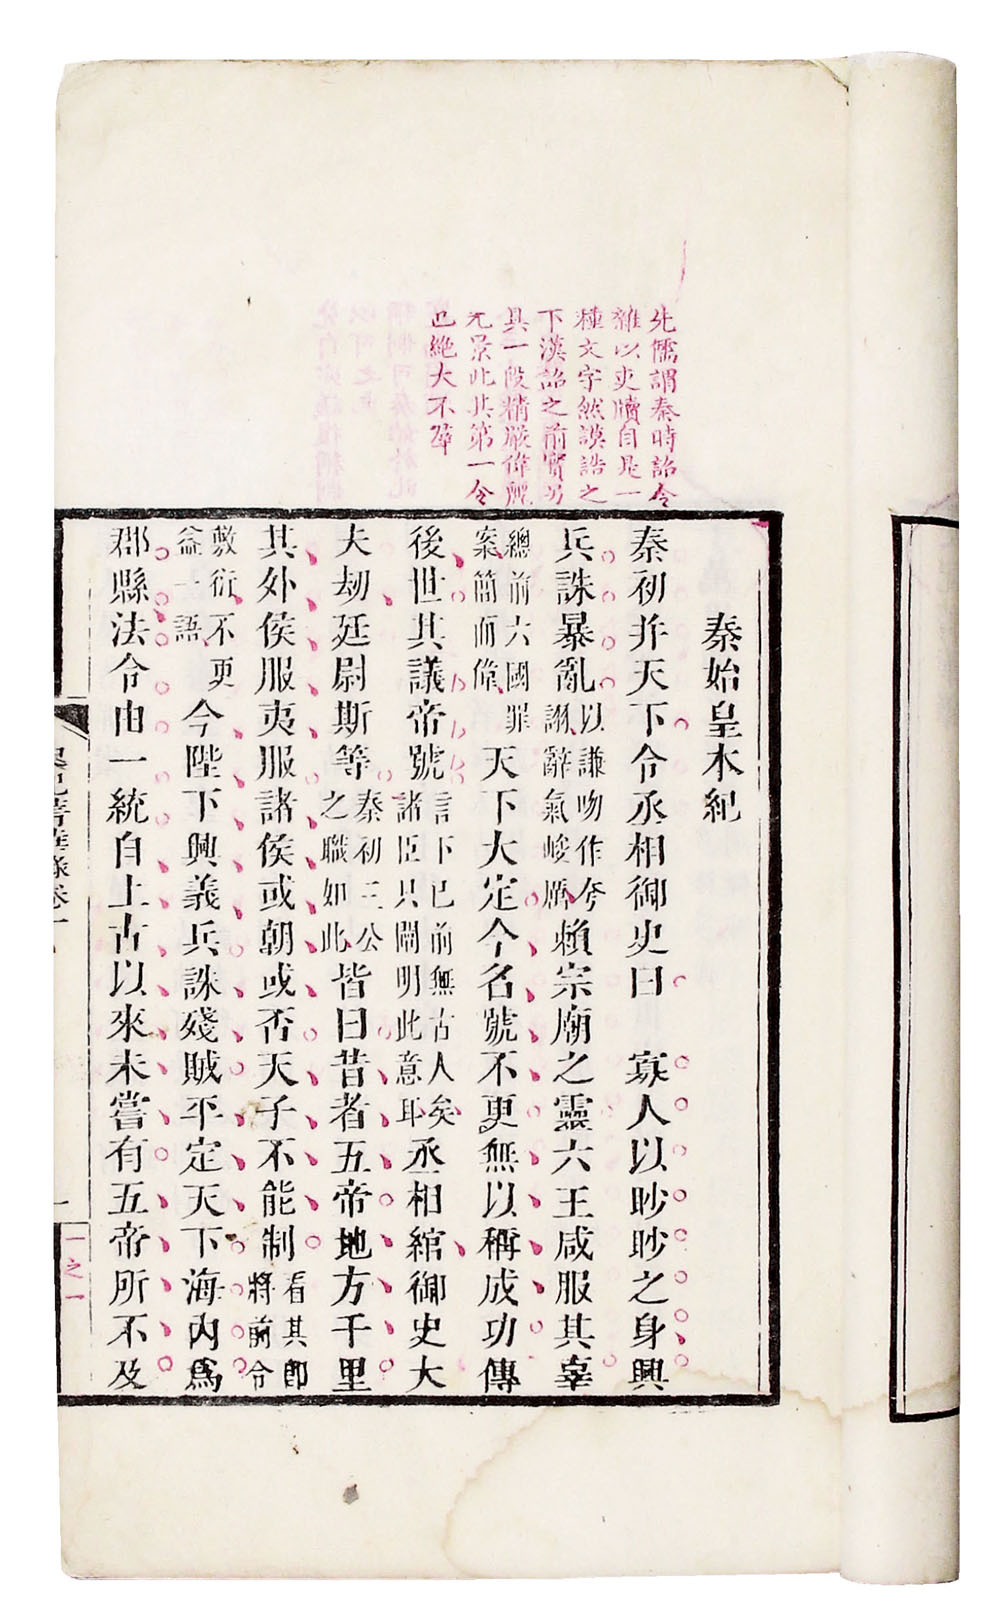 先儒謂秦時詔令
雜以吏牘自是一
種文字然謨誥之
下漢詔之前實另
具一段精嚴偉麗
光景此其第一令
已絕大不羣
秦始皇本紀
秦初并天下令丞相御史曰　寡人以眇眇之身興
兵誅暴亂以謙吻作夸詡辭氣峻厲賴宗廟之靈六王咸服其辜
總前六國罪案簡而偉天下大定今名號不更無以稱成功傳
後世其議帝號言下已前無古人矣諸臣只闡明此意耳丞相綰御史大
夫劫廷尉斯等秦初三公之職如此皆曰昔者五帝地方千里
其外侯服夷服諸侯或朝或否天子不能制看其即將前令
敷衍不更益一語今陛下興義兵誅殘賊平定天下海內爲
郡縣法令由一統自上古以來未嘗有五帝所不及
菁華錄卷一
一
一之一